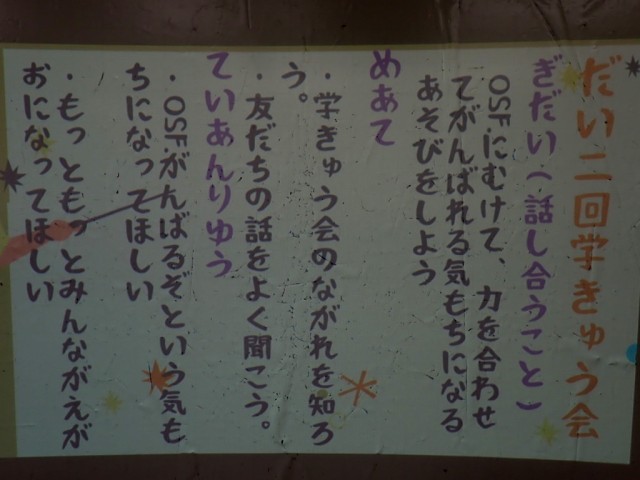 だい二回学きゅう会
ぎだい(話し合うこと)
OSFにむけて、力を合わせ
てがんばれる気もちになる
あそびをしよう
めあて
・学きゅう会のながれを知ろ
う。
・友だちの話をよく聞こう。
ていあんりゆう
・OSFがんばるぞという気も
ちになってほしい
・もっともっとみんながえが
おになってほしい